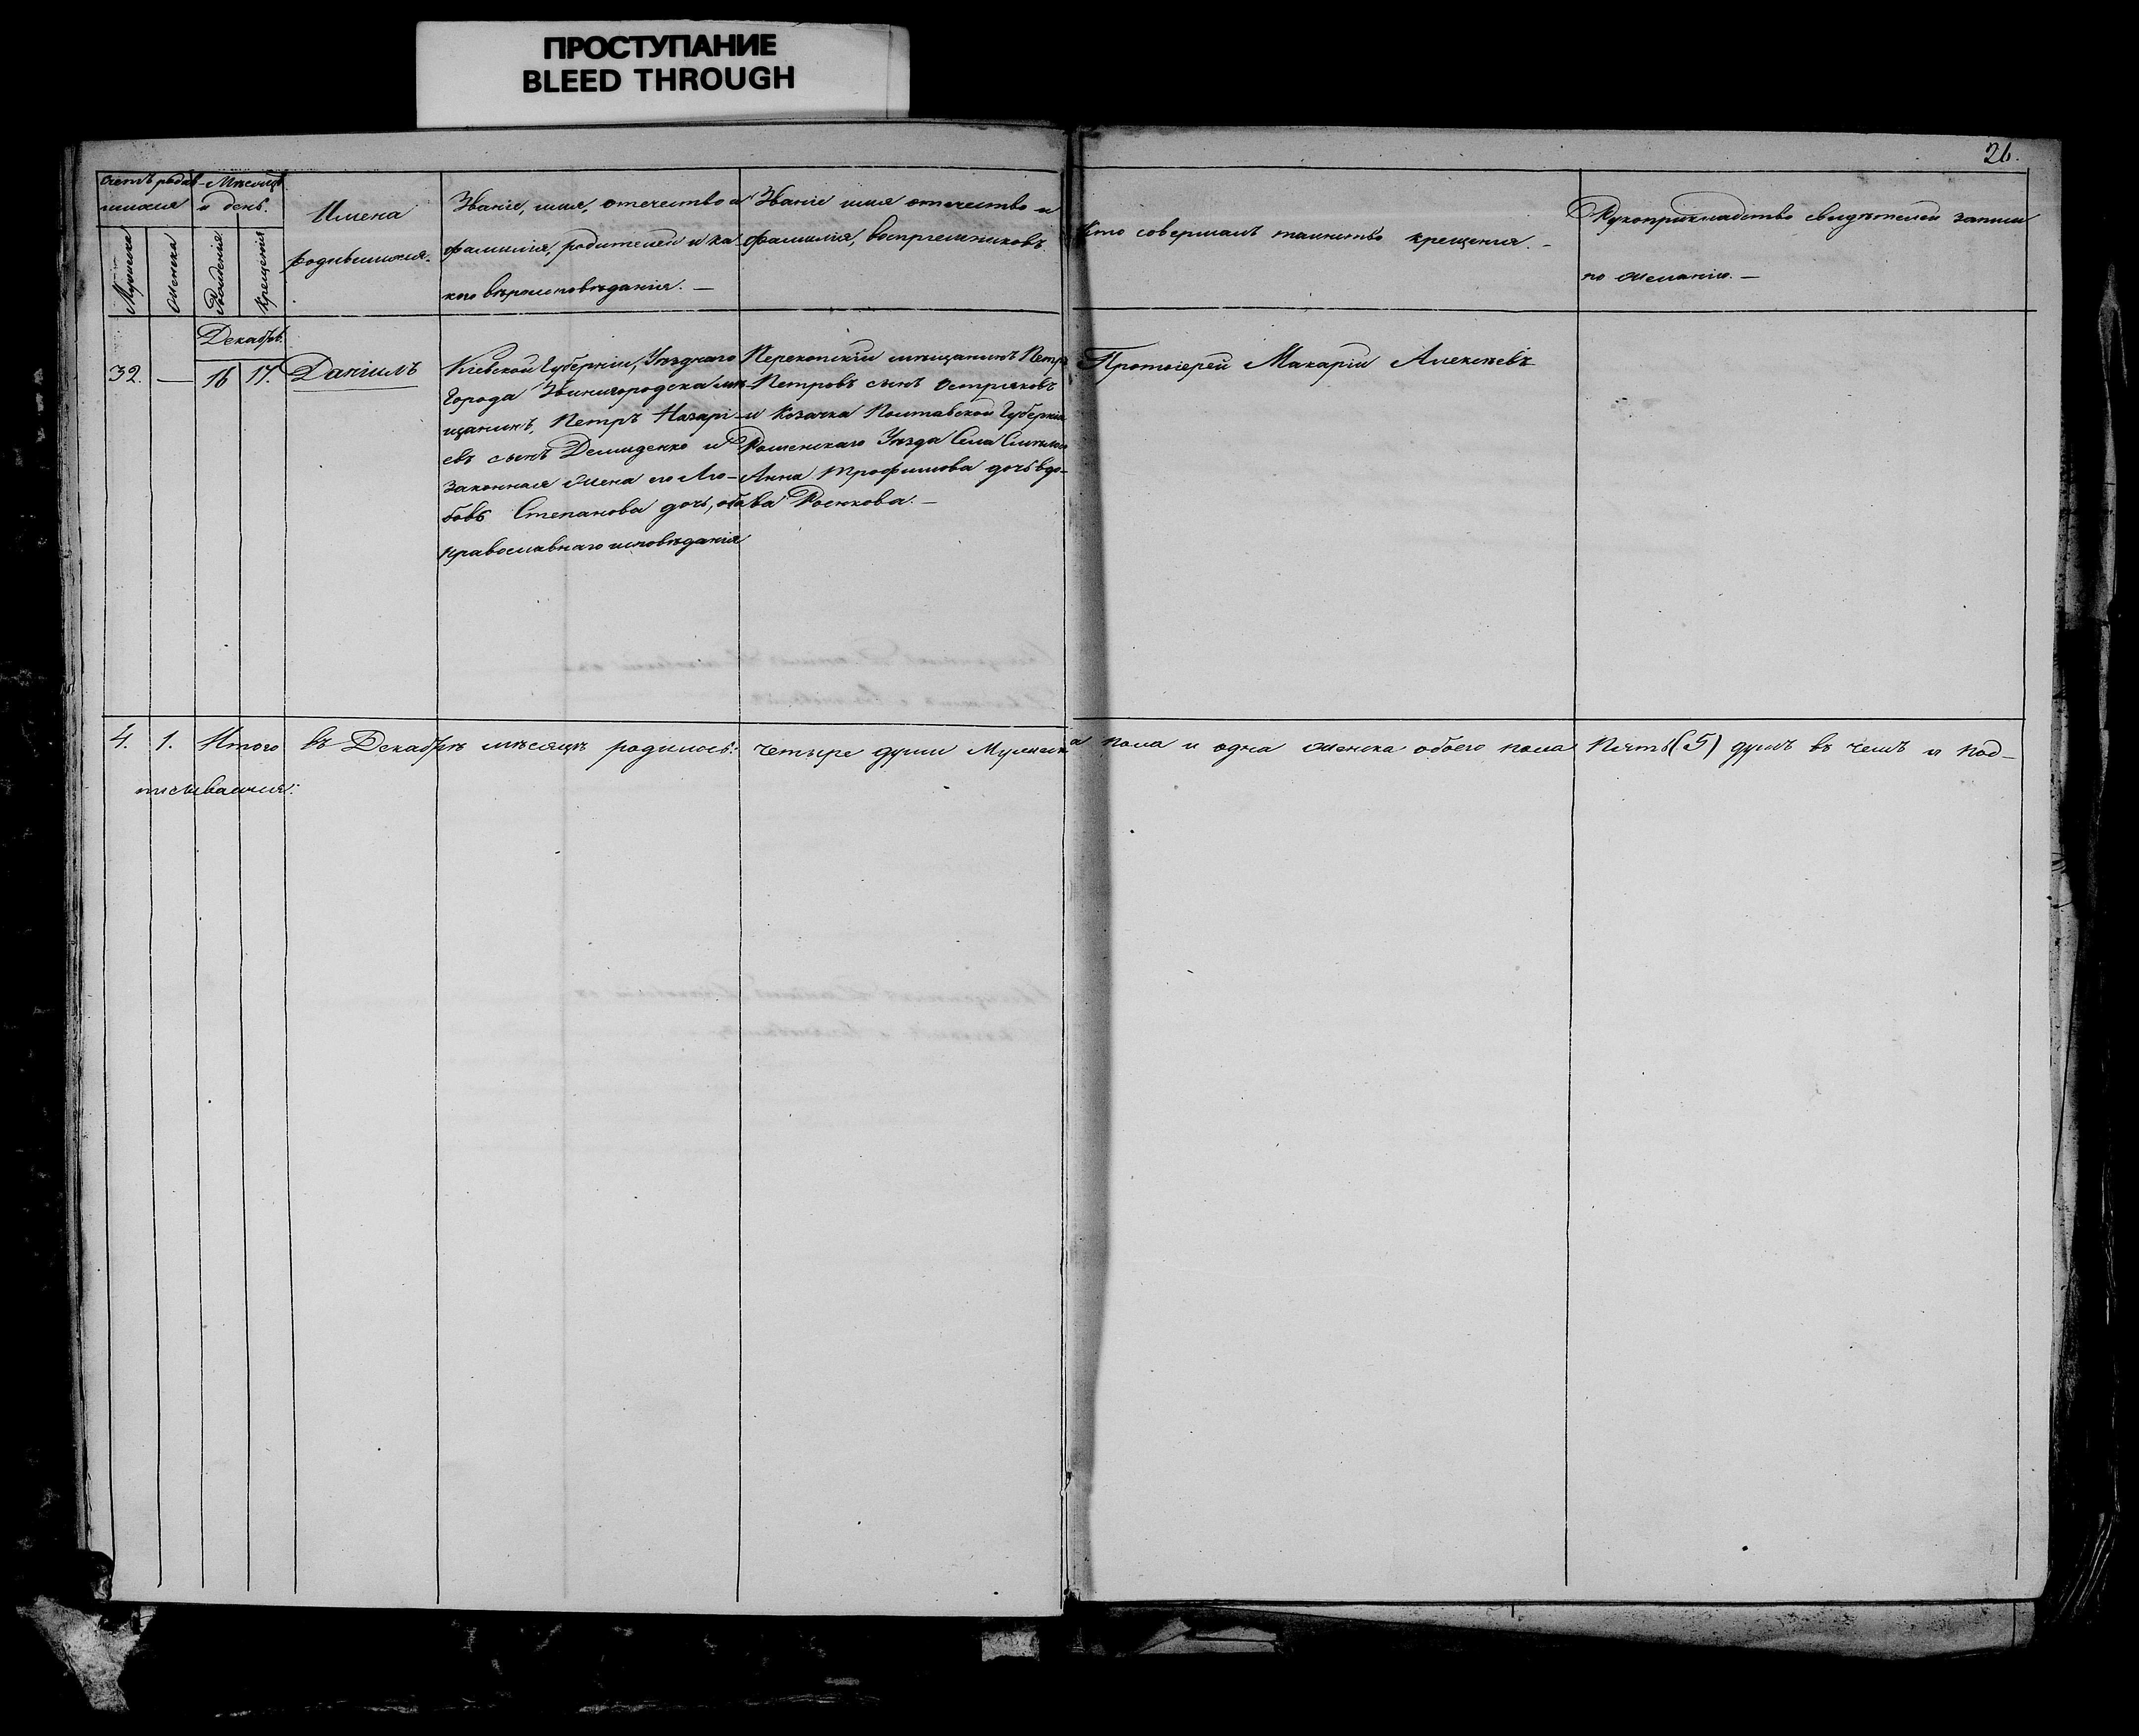 ПРОСТУПАНИЕ
BLEED THROUGH
26.
Счетъ родив-
шихся
Мѣсяцъ
и день.
Мужеска
Женска
Рожденія
Крещенія
Имена
родившихся.
Званіе, имя, отечество и
фамилія, родителей и ка
кого вѣроисповѣданія. —
Званіе имя отечество и
фамилія, воспріемниковъ.
Кто совершалъ таинство крещенія. —
Рукоприкладство свидѣтелей записи
по желанію. —
Декабрь.
32. — 16 17. Даніилъ
Кіевской Губерніи, Уѣзднаго
Города Звинигородска мѣ-
щанинъ, Петръ Назарі-
евъ сынъ Демиденко и
законная жена его Лю-
бовь Степанова дочь, оба
православнаго исповѣданія
Перекопскій мѣщанинъ Петръ
Петровъ сынъ Остряковъ
и Козачка Полтавской Губерніи
Роменскаго Уѣзда Села
Анна Трофимова дочь вдо-
ва Роенкова. —
Протоіерей Макарій Алексѣевъ
4. 1. Итого въ Декабрѣ мѣсяцѣ родилось: четыре души Мужеска пола и одна женска обоего пола Пять (5) душъ въ чемъ и под-
писываемся: